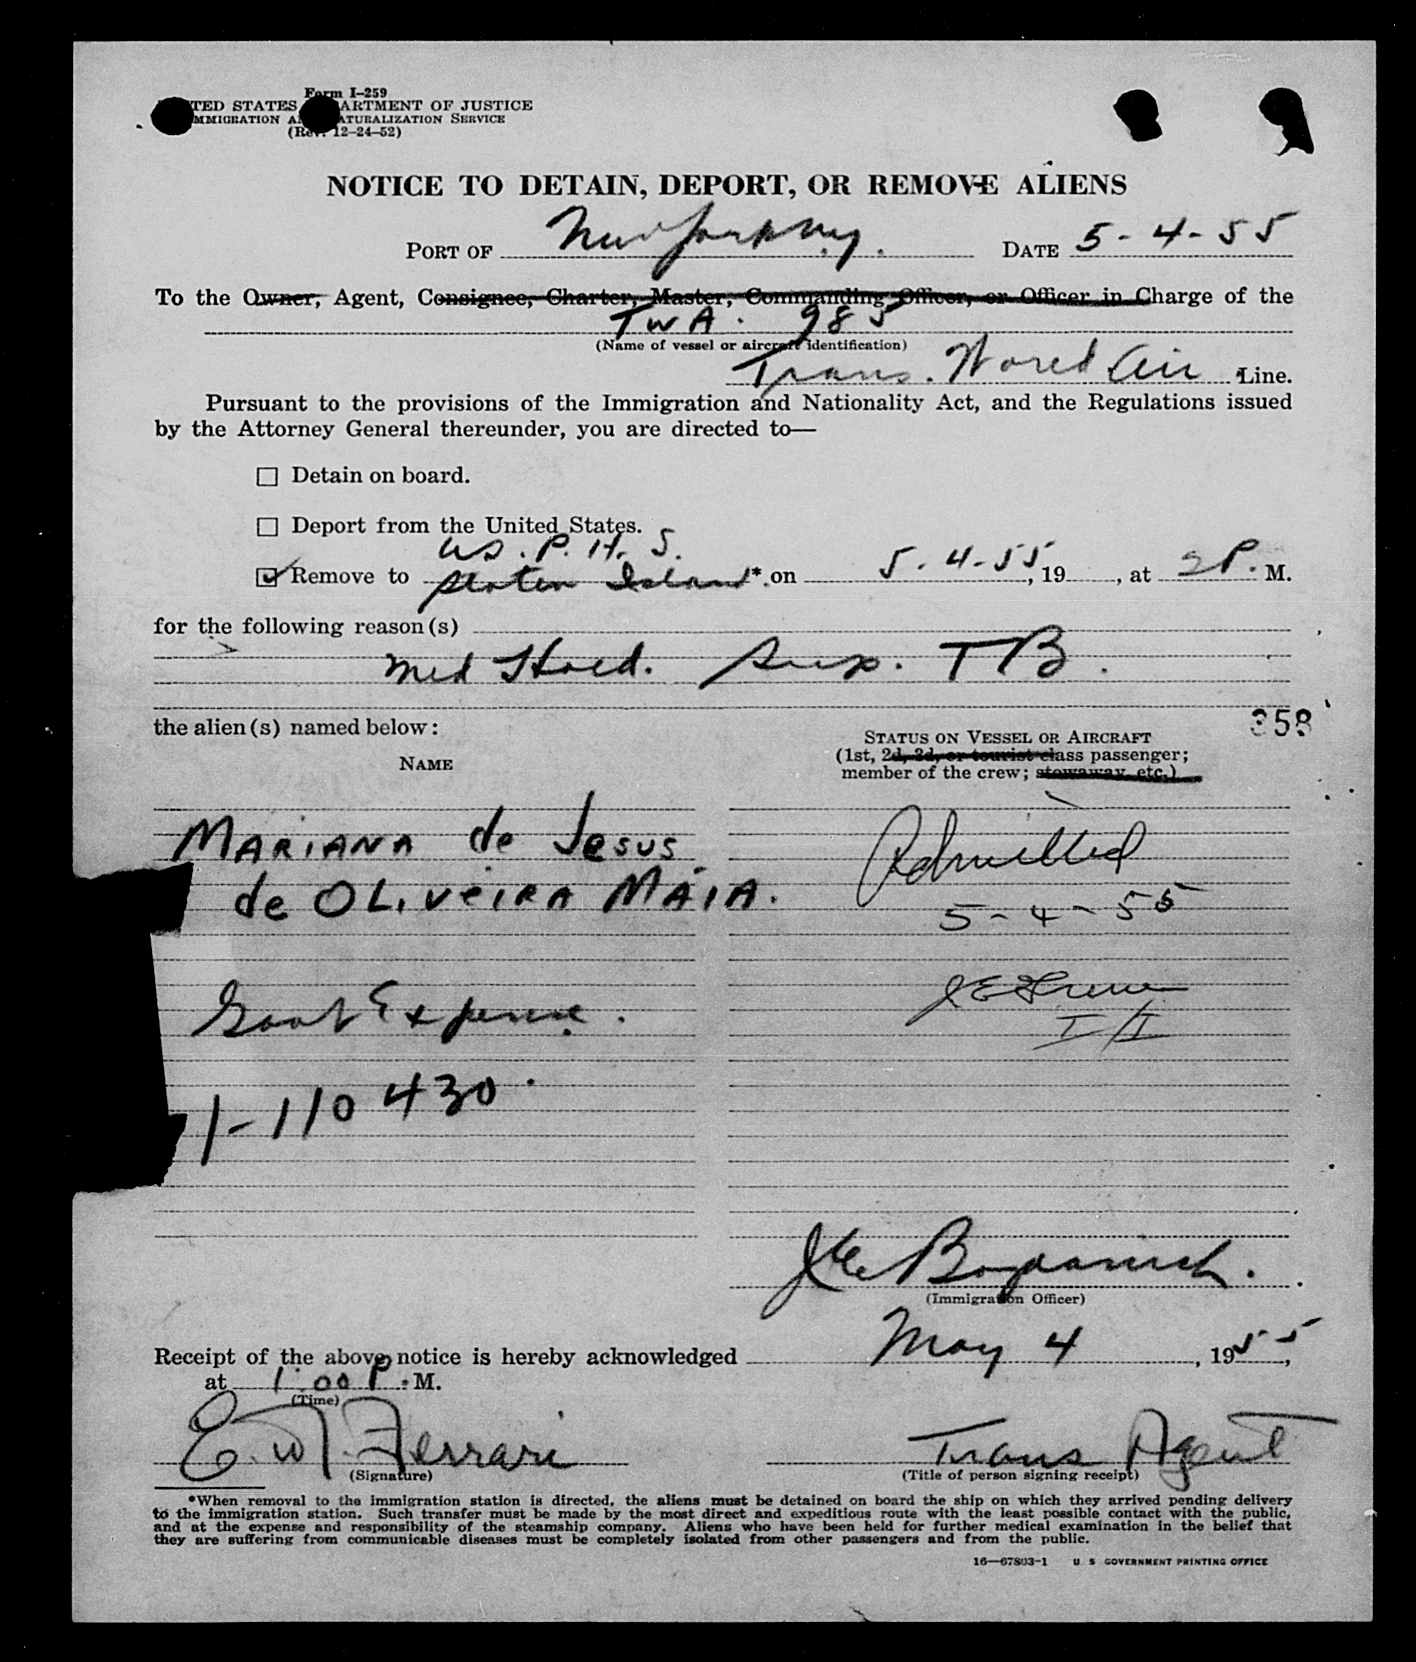 Form I-259
UNITED STATES DEPARTMENT OF JUSTICE
IMMIGRATION AND NATURALIZATION SERVICE
(Rev. 12-24-52)
NOTICE TO DETAIN, DEPORT, OR REMOVE ALIENS
PORT OF New York N.y. DATE 5-4-55
To the Owner, Agent, Consignee, Charter, Master, Commanding Officer, or Officer in Charge of the
TWA. 985
(Name of vessel or aircraft identification)
Trans. World Air Line.
Pursuant to the provisions of the Immigration and Nationality Act, and the Regulations issued
by the Attorney General thereunder, you are directed to—
Detain on board.
Deport from the United States.
US. P. H. S.
Remove to Staten Island*. on 5-4-55, 19 , at 2P. M.
for the following reason(s)
Med Hold. Susp. TB.
the alien(s) named below:
358
STATUS ON VESSEL OR AIRCRAFT
(1st, 2d, 3d, or tourist class passenger;
NAME
member of the crew; stowaway, etc.)
MARIANA de Jesus
Admitted
de OLiveiRA MAIA.
5-4-55
Govt Expense.
I/I
1-110430.
(Immigration Officer)
Receipt of the above notice is hereby acknowledged May 4, 1955,
at 1:00 P. M.
(Time)
E. W. Ferrari Trans Agent
(Signature) (Title of person signing receipt)
*When removal to the immigration station is directed, the aliens must be detained on board the ship on which they arrived pending delivery
to the immigration station. Such transfer must be made by the most direct and expeditious route with the least possible contact with the public,
and at the expense and responsibility of the steamship company. Aliens who have been held for further medical examination in the belief that
they are suffering from communicable diseases must be completely isolated from other passengers and from the public.
16—67803-1 U. S. GOVERNMENT PRINTING OFFICE